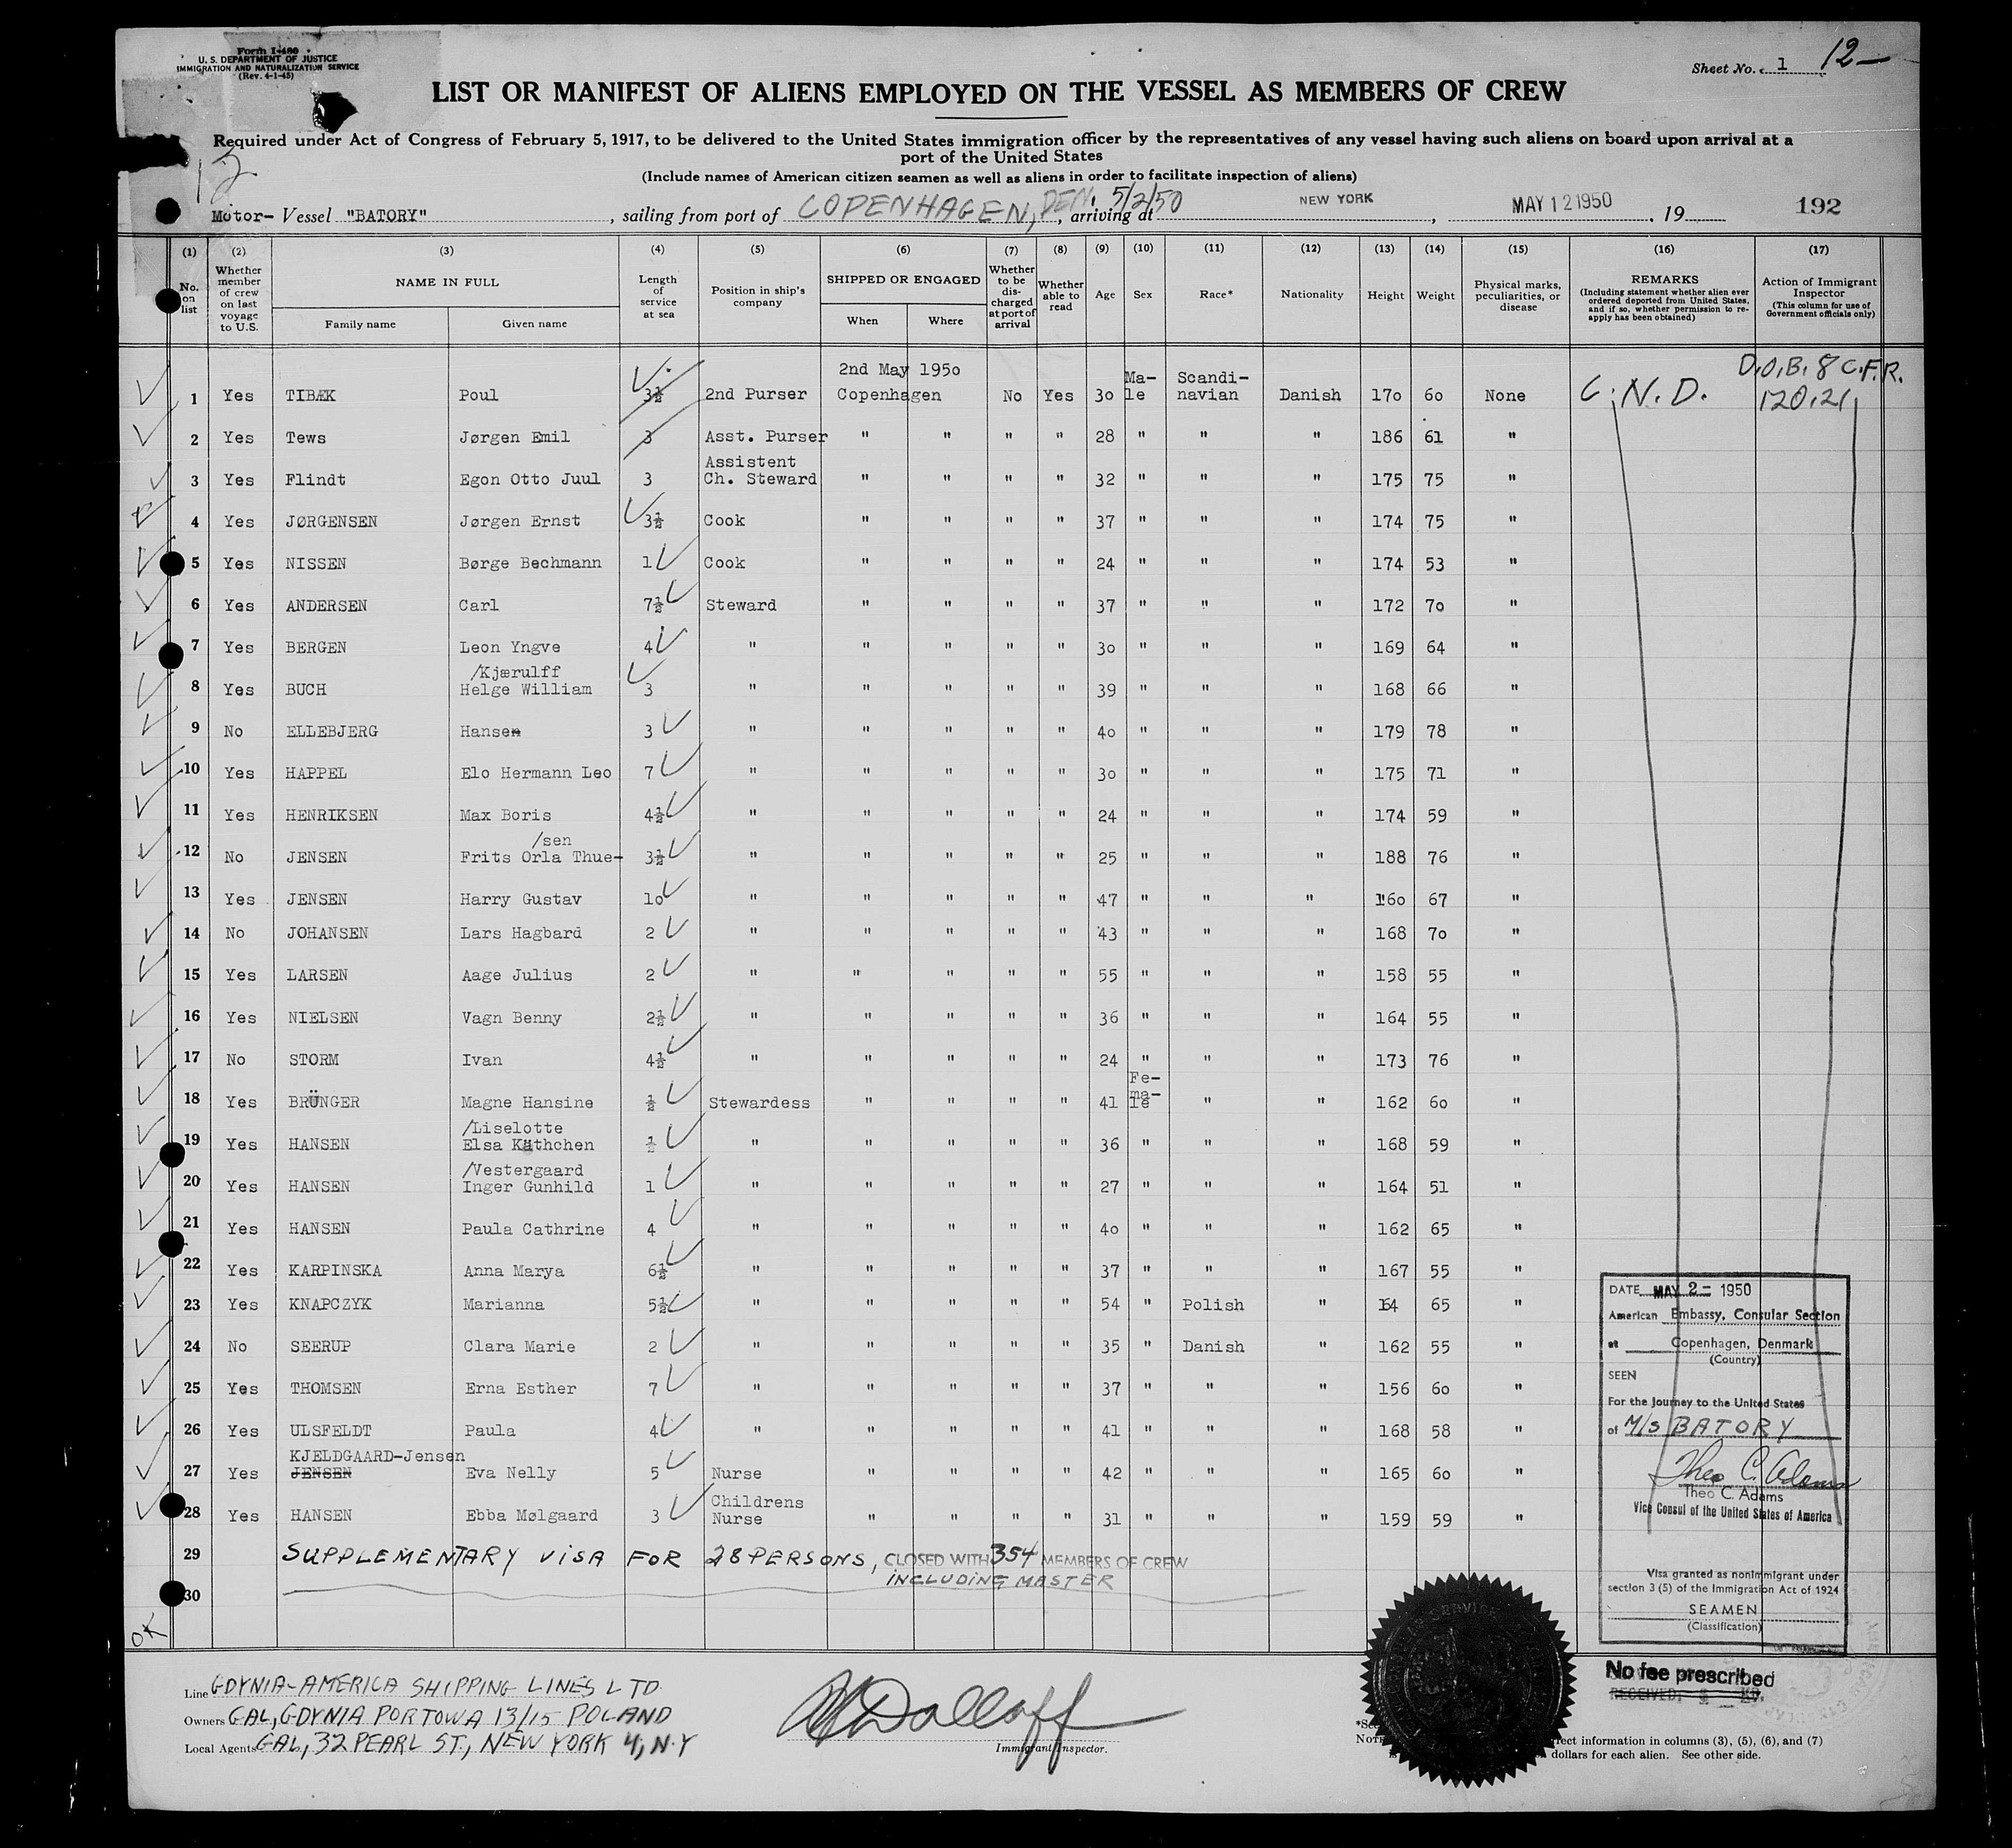 Form I-480
U. S. DEPARTMENT OF JUSTICE
IMMIGRATION AND NATURALIZATION SERVICE
(Rev. 4-1-45)
Sheet No. 1
12—
LIST OR MANIFEST OF ALIENS EMPLOYED ON THE VESSEL AS MEMBERS OF CREW
Required under Act of Congress of February 5, 1917, to be delivered to the United States immigration officer by the representatives of any vessel having such aliens on board upon arrival at a
port of the United States
(Include names of American citizen seamen as well as aliens in order to facilitate inspection of aliens)
12
Motor- Vessel "BATORY", sailing from port of COPENHAGEN, DEN. 5/2/50, arriving at NEW YORK, MAY 12 1950, 19 192
(1) (2) (3) (4) (5) (6) (7) (8) (9) (10) (11) (12) (13) (14) (15) (16) (17)
No. on list
Whether member of crew on last voyage to U.S.
NAME IN FULL
Family name
Given name
Length of service at sea
Position in ship's company
SHIPPED OR ENGAGED
When
Where
Whether to be dis-charged at port of arrival
Whether able to read
Age
Sex
Race*
Nationality
Height
Weight
Physical marks, peculiarities, or disease
REMARKS
(Including statement whether alien ever ordered deported from United States, and if so, whether permission to re-apply has been obtained)
Action of Immigrant Inspector
(This column for use of Government officials only)
D.O.B. 8 C.F.R.
120.21
C.N.D.
2nd May 1950
1 Yes TIBÆK Poul 3½ 2nd Purser Copenhagen No Yes 30 Ma-le Scandi-navian Danish 170 60 None
2 Yes Tews Jørgen Emil 3 Asst. Purser " " " " 28 " " " 186 61 "
3 Yes Flindt Egon Otto Juul 3 Assistent Ch. Steward " " " " 32 " " " 175 75 "
4 Yes JØRGENSEN Jørgen Ernst 3½ Cook " " " " 37 " " " 174 75 "
5 Yes NISSEN Børge Bechmann 1 Cook " " " " 24 " " " 174 53 "
6 Yes ANDERSEN Carl 7½ Steward " " " " 37 " " " 172 70 "
7 Yes BERGEN Leon Yngve 4 " " " " " 30 " " " 169 64 "
/Kjærulff
8 Yes BUCH Helge William 3 " " " " " 39 " " " 168 66 "
9 No ELLEBJERG Hansen 3 " " " " " 40 " " " 179 78 "
10 Yes HAPPEL Elo Hermann Leo 7 " " " " " 30 " " " 175 71 "
11 Yes HENRIKSEN Max Boris 4½ " " " " " 24 " " " 174 59 "
/sen
12 No JENSEN Frits Orla Thue- 3½ " " " " " 25 " " " 188 76 "
13 Yes JENSEN Harry Gustav 10 " " " " " 47 " " " 160 67 "
14 No JOHANSEN Lars Hagbard 2 " " " " " 43 " " " 168 70 "
15 Yes LARSEN Aage Julius 2 " " " " " 55 " " " 158 55 "
16 Yes NIELSEN Vagn Benny 2½ " " " " " 36 " " " 164 55 "
17 No STORM Ivan 4½ " " " " " 24 " " " 173 76 "
18 Yes BRÜNGER Magne Hansine ½ Stewardess " " " " 41 Fe-ma-le " " 162 60 "
/Liselotte
19 Yes HANSEN Elsa Käthchen ½ " " " " " 36 " " " 168 59 "
/Vestergaard
20 Yes HANSEN Inger Gunhild 1 " " " " " 27 " " " 164 51 "
21 Yes HANSEN Paula Cathrine 4 " " " " " 40 " " " 162 65 "
22 Yes KARPINSKA Anna Marya 6½ " " " " " 37 " " " 167 55 "
23 Yes KNAPCZYK Marianna 5½ " " " " " 54 " Polish " 164 65 "
24 No SEERUP Clara Marie 2 " " " " " 35 " Danish " 162 55 "
25 Yes THOMSEN Erna Esther 7 " " " " " 37 " " " 156 60 "
26 Yes ULSFELDT Paula 4 " " " " " 41 " " " 168 58 "
KJELDGAARD-Jensen
27 Yes JENSEN Eva Nelly 5 Nurse " " " " 42 " " " 165 60 "
28 Yes HANSEN Ebba Mølgaard 3 Childrens Nurse " " " " 31 " " " 159 59 "
29 SUPPLEMENTARY VISA FOR 28 PERSONS, CLOSED WITH 354 MEMBERS OF CREW
INCLUDING MASTER
30
OK
DATE MAY 2- 1950
American Embassy, Consular Section
at Copenhagen, Denmark
(Country)
SEEN
For the Journey to the United States
of M/S BATORY
Theo C. Adams
Theo C. Adams
Vice Consul of the United States of America
Visa granted as nonimmigrant under
section 3 (5) of the Immigration Act of 1924
SEAMEN
(Classification)
No fee prescribed
Line GDYNIA-AMERICA SHIPPING LINES LTD.
Owners GAL, GDYNIA PORTOWA 13/15 POLAND
Local Agents GAL, 32 PEARL ST., NEW YORK 4, N.Y
Immigrant Inspector.
*See
NOTE
information in columns (3), (5), (6), and (7)
dollars for each alien. See other side.